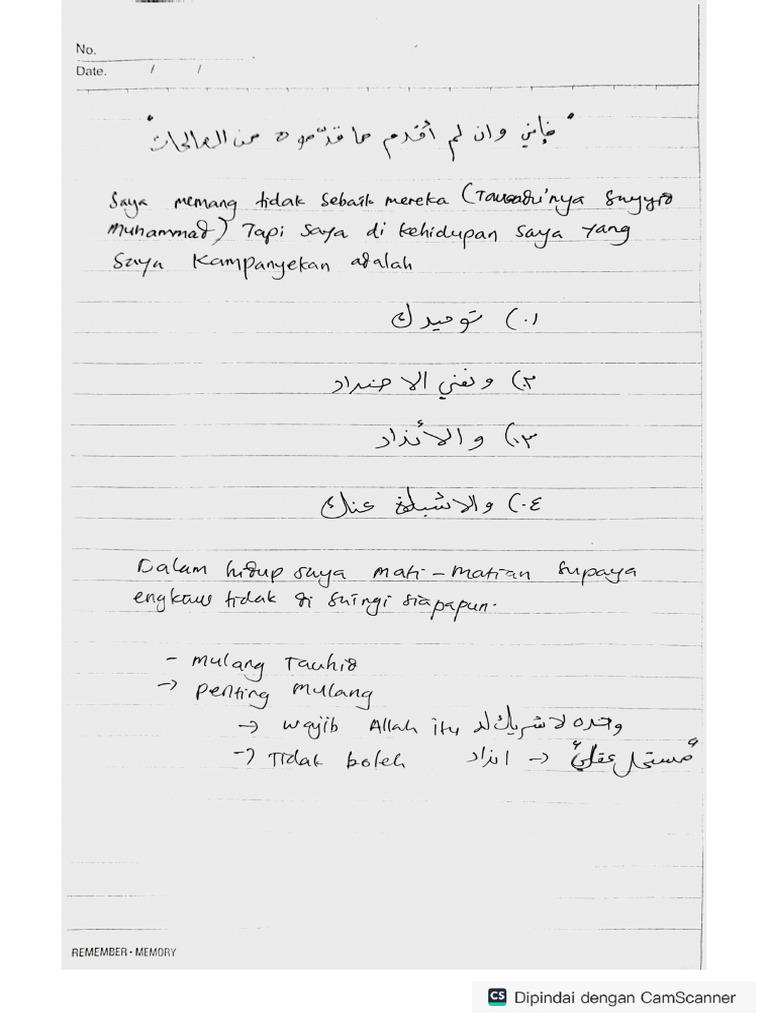 No.
Date. / /
"فإني وان لم أقدم ما قدّموه من الصالحات"
Saya memang tidak sebaik mereka (Tawadu'nya Sayyid
Muhammad) Tapi saya di kehidupan saya yang
Saya Kampanyekan adalah
١.) توحيدك
٢) ونفي الاضداد
٣.) والأنداد
٤.) والاشباه عنك
Dalam hidup saya mati-matian supaya
engkau tidak di saingi siapapun.
- mulang Tauhid
→ penting mulang
→ wajib Allah itu وحده لا شريك له
→ Tidak boleh انداد → "مستحل عقلي"
REMEMBER • MEMORY
CS Dipindai dengan CamScanner